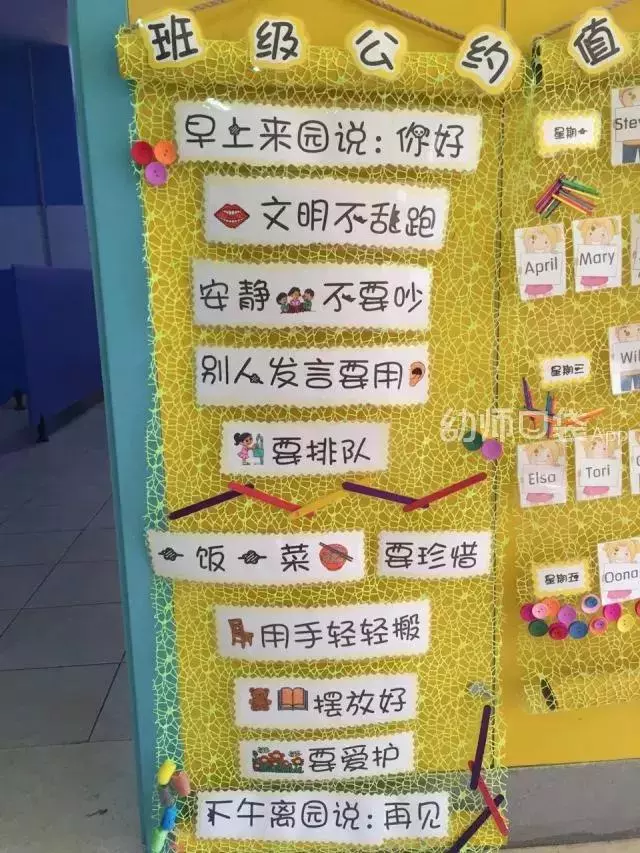 班级公约
值
早上来园说：你好
文明不乱跑
安静不要吵
别人发言要用
要排队
一饭一菜 要珍惜
用手轻轻搬
摆放好
要爱护
下午离园说：再见
星期一
Stev
April
Mary
星期三
Wil
Elsa
Tori
星期五
Oona
幼师口袋APP